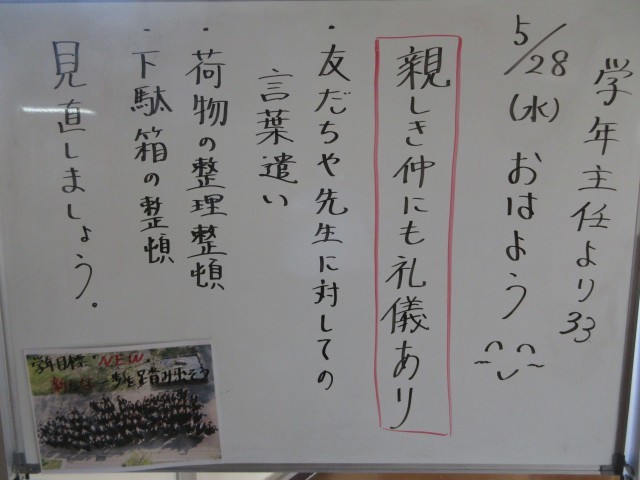 学年主任より33
5/28(水)おはよう
親しき仲にも礼儀あり
・友だちや先生に対しての
言葉遣い
・荷物の整理整頓
・下駄箱の整頓
見直しましょう。
学年目標 NEW
一歩を踏み出そう